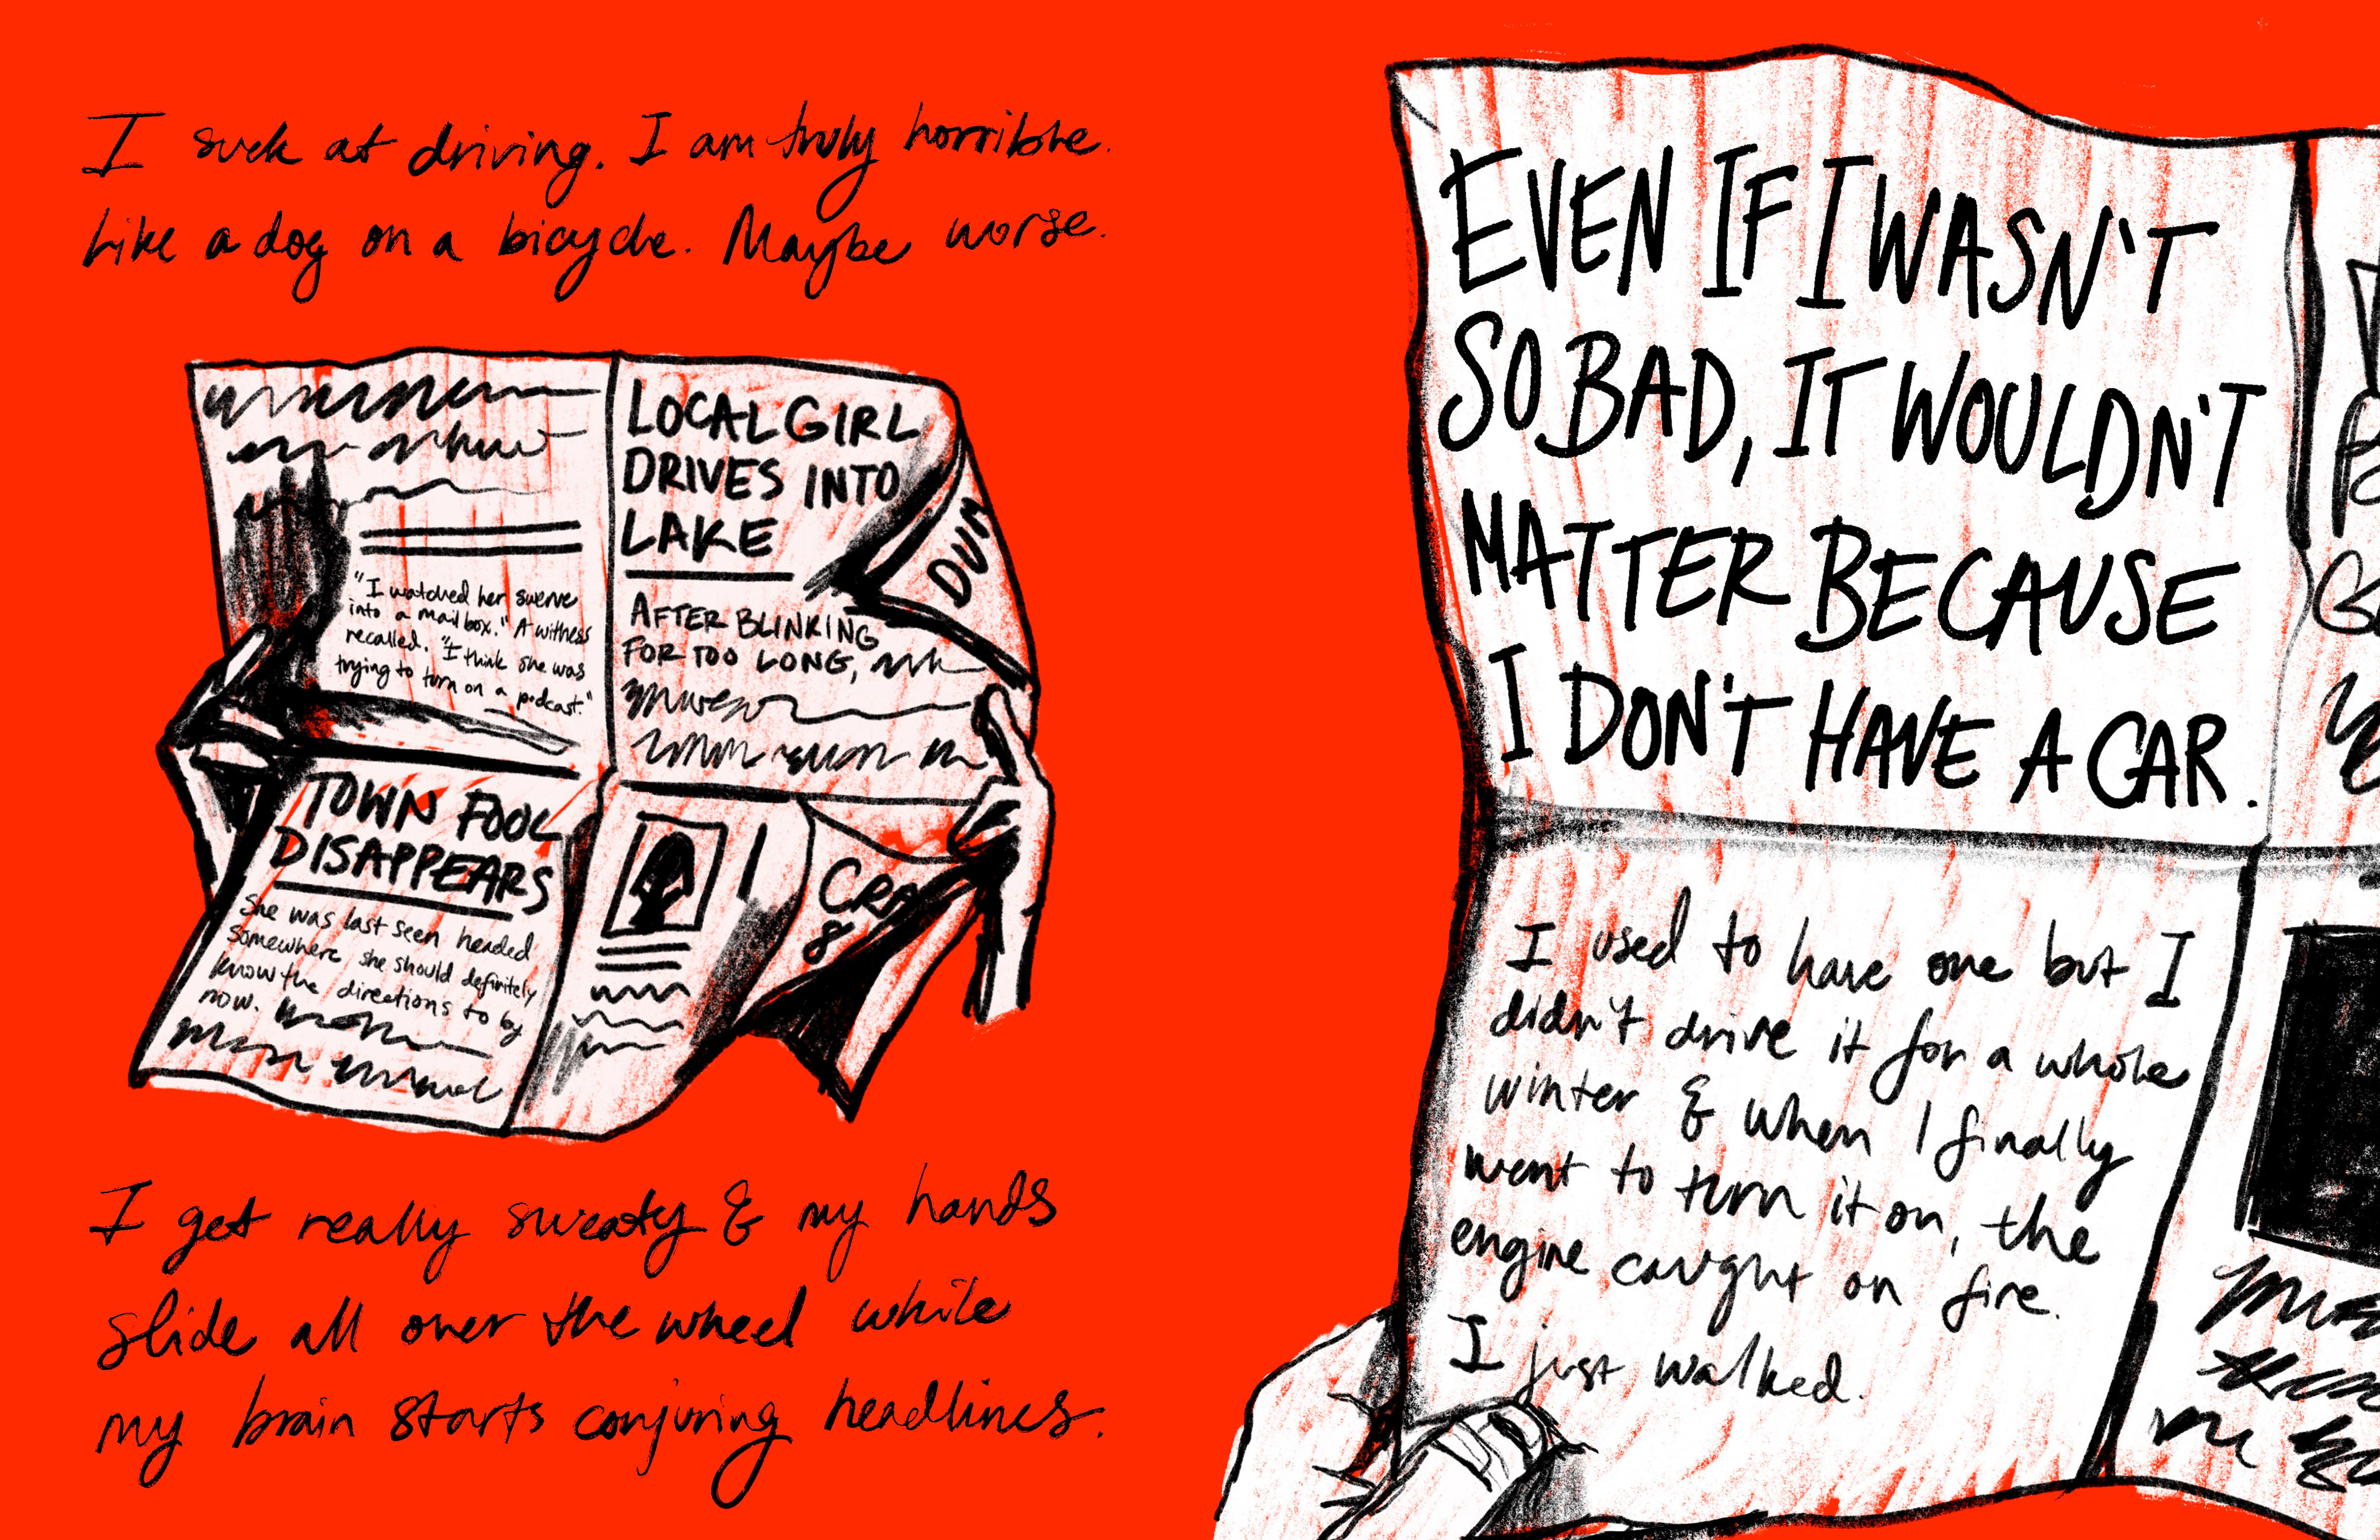 I suck at driving. I am truly horrible.
Like a dog on a bicycle. Maybe worse.
"I watched her swerve
into a mailbox." A witness
recalled. "I think she was
trying to turn on a podcast."
LOCAL GIRL
DRIVES INTO
LAKE
AFTER BLINKING
FOR TOO LONG,
DUM
TOWN FOOL
DISAPPEARS
She was last seen headed
somewhere she should definitely
know the directions to by
now.
CRA
&
I get really sweaty & my hands
slide all over the wheel while
my brain starts conjuring headlines.
EVEN IF I WASN'T
SO BAD, IT WOULDN'T
MATTER BECAUSE
I DON'T HAVE A CAR.
I used to have one but I
didn't drive it for a whole
winter & when I finally
went to turn it on, the
engine caught on fire.
I just walked.